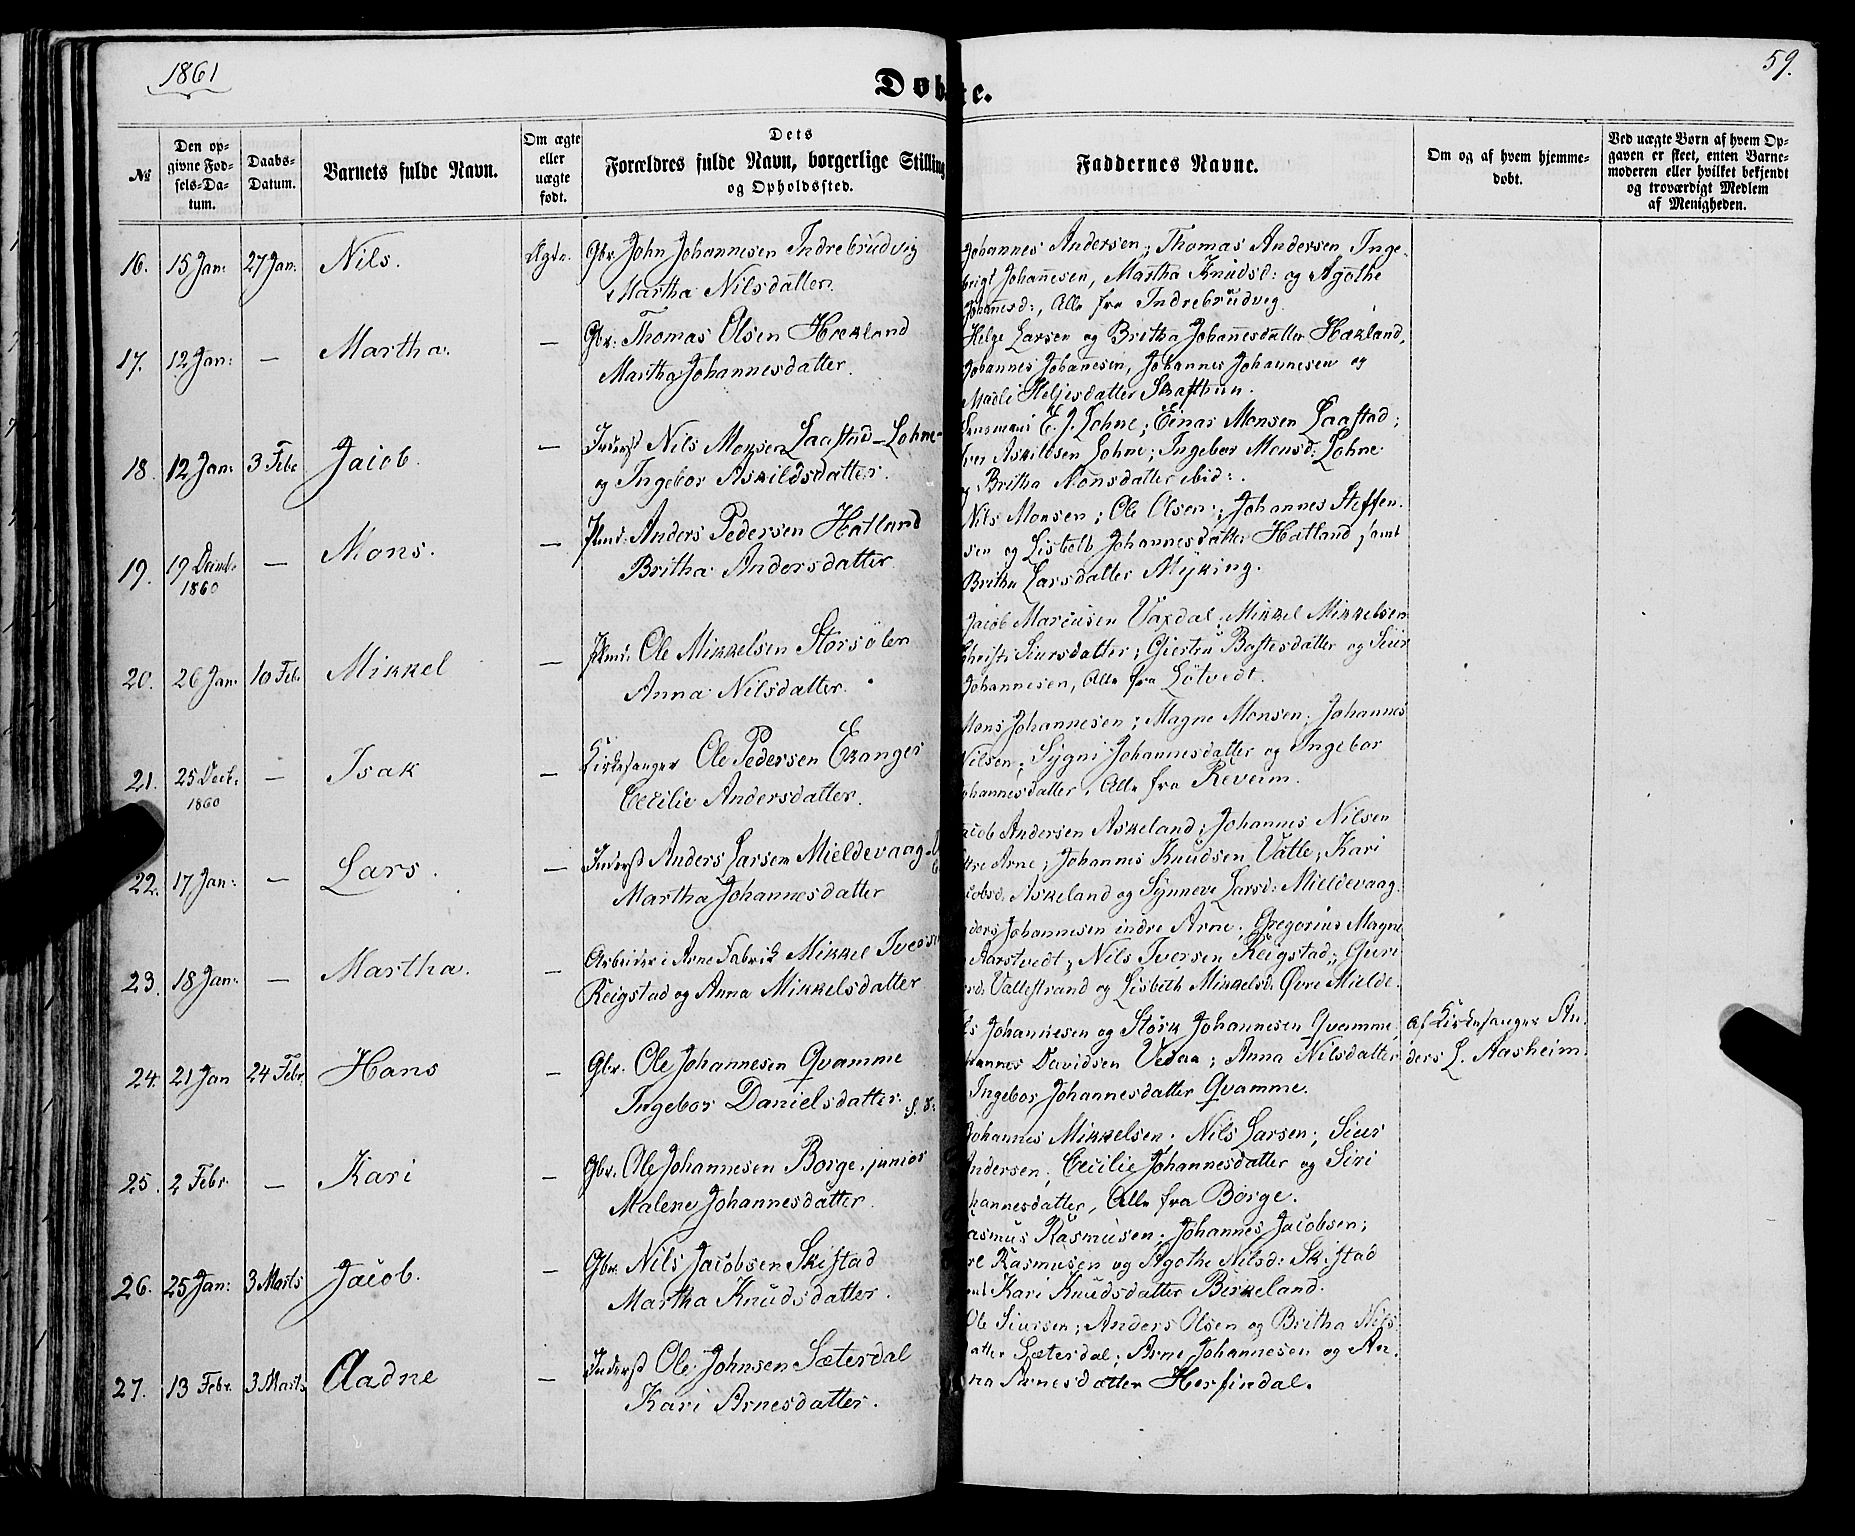 1861
59.
Døbte.
№
Den opgivne Fødsels-Datum.
Daabs-Datum.
Barnets fulde Navn.
Om ægte eller uægte født.
Dets Forældres fulde Navn, borgerlige Stilling og Opholdssted.
Faddernes Navne.
Om og af hvem hjemmedøbt.
Ved uægte Børn af hvem Opgaven er skeet, enten Barnemoderen eller hvilket bekjendt og troværdigt Medlem af Menigheden.
16. 15 Jan: 27 Jan: Nils. Ægte. Gbr. John Johannesen Indrebrudvig
Martha Nilsdatter.
Johannes Andersen; Thomas Andersen Inge-
Johannesen, Martha Knudsd: og Agothe
Johannesd:, Alle fra Indrebrudvig
17. 12 Jan: — Martha. — Gbr: Thomas Olsen Hækland
Martha Johannesdatter.
Helge Larsen og Britha Johannesdatter Hækland,
Johannes Johanesen, Johannes Johannesen og
Madli Heljesdatter Skafthun.
18. 12 Jan: 3 Febr Jacob. — Inderst Nils Monsen Laastad-Lohne
og Ingebor Askildsdatter.
E. J. Lohne; Einar Monsen Laastad;
Askildsen Lohne; Ingebor Monsd: Lohne
Britha Monsdatter ibid:.
19. 19 Decmb. 1860 — Mons. — Anders Pedersen Hatland
Britha Andersdatter
Nils Monsen; Ole Olsen; Johannes Steffen-
sen og Lisbeth Johannesdatter Hatland, samt
Britha Larsdatter Myking.
20. 26 Jan: 10 Feb: Mikkel — Ole Mikkelsen Størsølen
Anna Nilsdatter.
Jacob Marcusen Vaxdal; Mikkel Mikkelsen
Siursdatter; Gjertru Baftesdatter og Siur
Johannesen, Alle fra Løtvedt.
21. 25 Decb. 1860 — Isak — Kirkesanger Ole Pedersen Ekanger
Cecilie Andersdatter.
Mons Johannesen; Magne Monsen; Johannes
Nilsen; Sygni Johannesdatter og Ingebor
Johannesdatter, Alle fra Reveim.
22. 17 Jan: — Lars. — Inderst Anders Larsen Mieldevaag
Martha Johannesdatter
Jacob Andersen Askeland; Johannes Nilsen
Arne; Johannes Knudsen Vatle; Kari
Askeland og Synneve Larsd: Mieldevaag.
23. 18 Jan: — Martha. — Arbeider i Arne Fabrik Mikkel Iversen
Reigstad og Anna Mikkelsdatter
Johannesen indre Arne; Gregorius Magne
Aarstvedt; Nils Iversen Reigstad; Guri
Vallestrand og Lisbeth Mikkelsd: Øvre Mielde.
24. 21 Jan 24 Febr Hans — Gbr. Ole Johannesen Qvamme
Ingebor Danielsdatter
Johannesen og Størk Johannesen Qvamme,
Davidsen Vedaa; Anna Nilsdatter
Ingebor Johannesdatter Qvamme.
Af Kirkesanger An-
ders L. Aasheim.
25. 2 Febr. — Kari — Gbr. Ole Johannesen Borge, junior
Malene Johannesdatter.
Johannes Mikkelsen; Nils Larsen; Siur
Andersen; Cecilie Johannesdatter og Siri
Johannesdatter, Alle fra Borge.
26. 25 Jan: 3 Marts Jacob. — Gbr. Nils Jacobsen Skistad
Martha Knudsdatter.
Rasmus Rasmusen; Johannes Jacobsen;
Rasmusen og Agothe Nilsd: Skistad
Kari Knudsdatter Birkeland.
27. 13 Febr. 3 Marts Aadne — Inderst Ole Johnsen Sæterdal
Kari Arnesdatter.
Ole Siursen; Anders Olsen og Britha Nils-
datter Sæterdal; Arne Johannesen og An-
na Arnesdatter Herfindal.